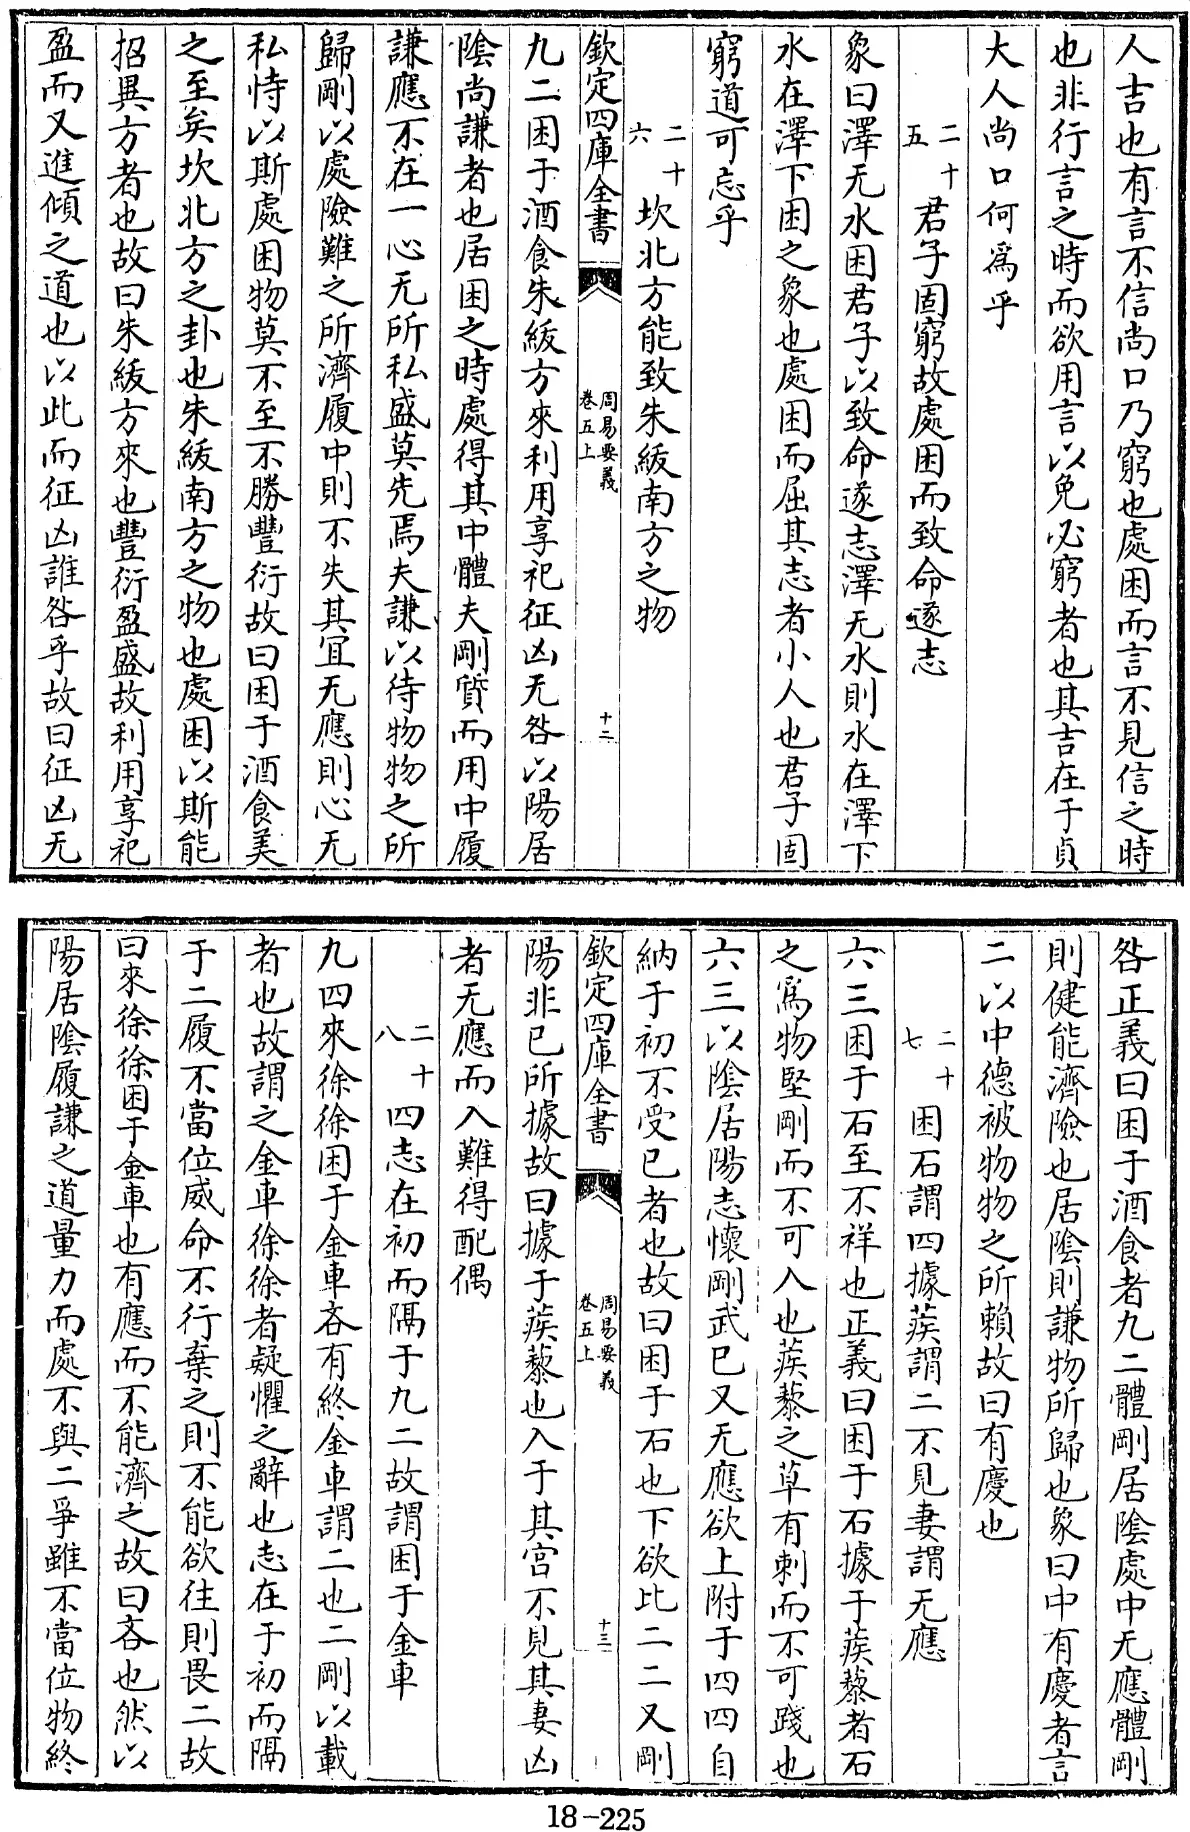 人吉也有言不信尚口乃窮也處困而言不見信之時
也非行言之時而欲用言以免必窮者也其吉在于貞
大人尚口何爲乎
二十五
君子固窮故處困而致命遂志
象曰澤无水困君子以致命遂志澤无水則水在澤下
水在澤下困之象也處困而屈其志者小人也君子固
窮道可忘乎
二十六
坎北方能致朱紱南方之物
欽定四庫全書
周易要義
卷五上
十二
九二困于酒食朱紱方來利用享祀征凶无咎以陽居
陰尚謙者也居困之時處得其中體夫剛質而用中履
謙應不在一心无所私盛莫先焉夫謙以待物物之所
歸剛以處險難之所濟履中則不失其宜无應則心无
私恃以斯處困物莫不至不勝豐衍故曰困于酒食美
之至矣坎北方之卦也朱紱南方之物也處困以斯能
招異方者也故曰朱紱方來也豐衍盈盛故利用享祀
盈而又進傾之道也以此而征凶誰咎乎故曰征凶无
咎正義曰困于酒食者九二體剛居陰處中无應體剛
則健能濟險也居陰則謙物所歸也象曰中有慶者言
二以中德被物物之所賴故曰有慶也
二十七
困石謂四據蒺謂二不見妻謂无應
六三困于石至不祥也正義曰困于石據于蒺藜者石
之爲物堅剛而不可入也蒺藜之草有刺而不可踐也
六三以陰居陽志懷剛武已又无應欲上附于四四自
納于初不受已者也故曰困于石也下欲比二二又剛
欽定四庫全書
周易要義
卷五上
十三
陽非已所據故曰據于蒺藜也入于其宮不見其妻凶
者无應而入難得配偶
二十八
四志在初而隔于九二故謂困于金車
九四來徐徐困于金車吝有終金車謂二也二剛以載
者也故謂之金車徐徐者疑懼之辭也志在于初而隔
于二履不當位威命不行棄之則不能欲往則畏二故
曰來徐徐困于金車也有應而不能濟之故曰吝也然以
陽居陰履謙之道量力而處不與二爭雖不當位物終
18-225